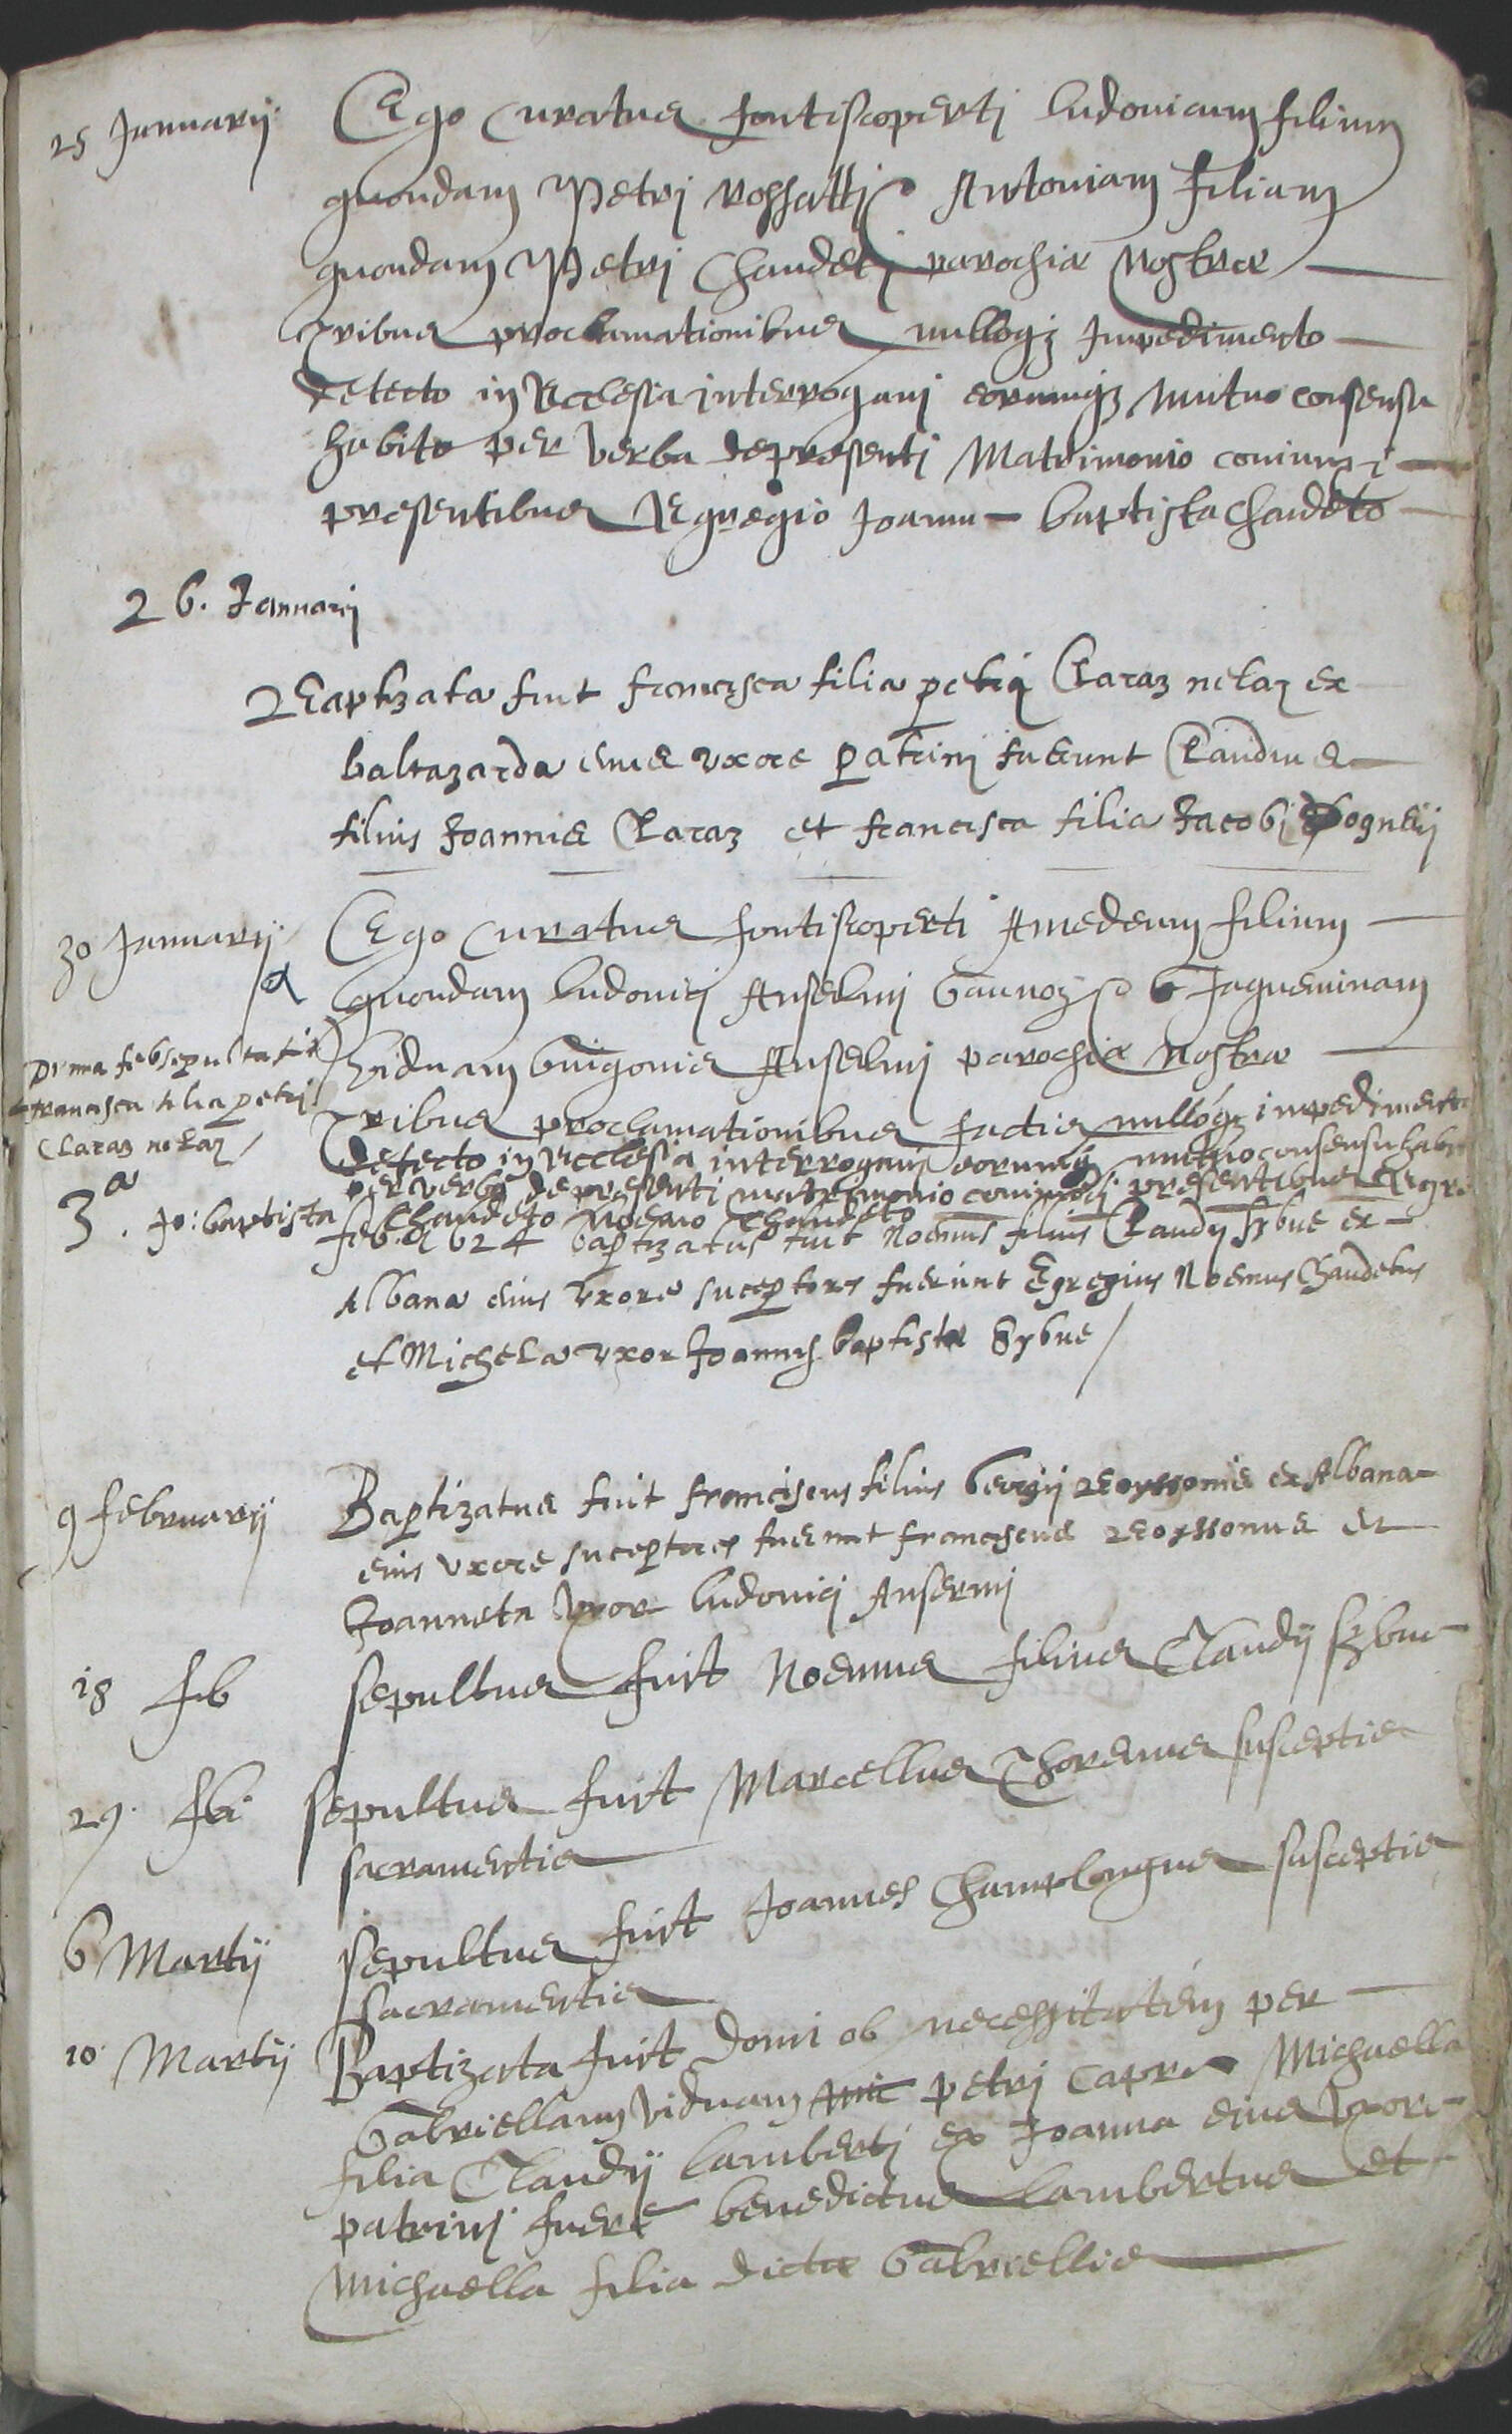 25 Januarij Ego Curatus fontiscoperti ludovicum filium
quondam Petri rossatti & Antoniam filiam
quondam Petri Chaudeti parochiæ nostræ
tribus proclamationibus nulloq; Impedimento
detecto in Ecclesia interrogavi eorumq; mutuo consensu
habito per verba de presenti Matrimonio coniunxi
presentibus Egregio Joanne baptista Chaudeto
26. Januarij
Baptizata fuit francisca filia petri Claraz ex
baltazarda eius uxore patrini fuerunt Claudius
filius Joannis Claraz et francisca filia Jacobi
30 Januarij Ego Curatus fontiscoperti Amedeum filium
quondam ludovici Anselmi & Jaqueminam
viduam Guigonis Anselmi parochiæ nostræ
prima feb sepulta fuit
francisca filia petri
Claraz
tribus proclamationibus factis nulloq; impedimento
detecto in Ecclesia interrogavi eorumq; mutuo consensu habito
per verba de presenti matrimonio coniunxi presentibus Egre
Jo: baptista Chaudeto Noemo Chaudeto
3a feb. 1624 baptizatus fuit Noemus filius Claudij Sybue ex
Albana eius uxore suceptores fuerunt Egregius Noemus Chaudetus
et Michela uxor Joannis baptistæ Sybue
9 februarij Baptizatus fuit franciscus filius Georgij Boyssonis ex Albana
eius uxore suceptores fuerunt franciscus Boyssonus et
Joanneta uxor ludovici Anselmi
18 feb sepultus fuit Noemus filius Claudij Sybue
29. feb sepultus fuit Marcellus Choremus susceptis
sacramentis
6 Martij sepultus fuit Joannes Champlongus susceptis
sacramentis
10 Martij Baptizata fuit domi ob necessitatem per
Gabriellam viduam petri Capræ Michaella
filia Claudij lamberti ex Joanna eius uxore
patrini fuere benedictus lambertus et
Michaella filia dictæ Gabriellis